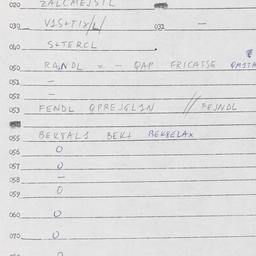 020 ZALCMEJSIL
030 V1S+TIX/L/ 031 —
040 S+TERCL
050 RA,NDL = - QAP FRICASSE
051 —
052 —
053 FENDL QPREJGL1N // FEJNDL
055 BEK8AL1 BEK+ BEK8ELAX
056 0
057 0
058 —
059 0
060 0
070 0